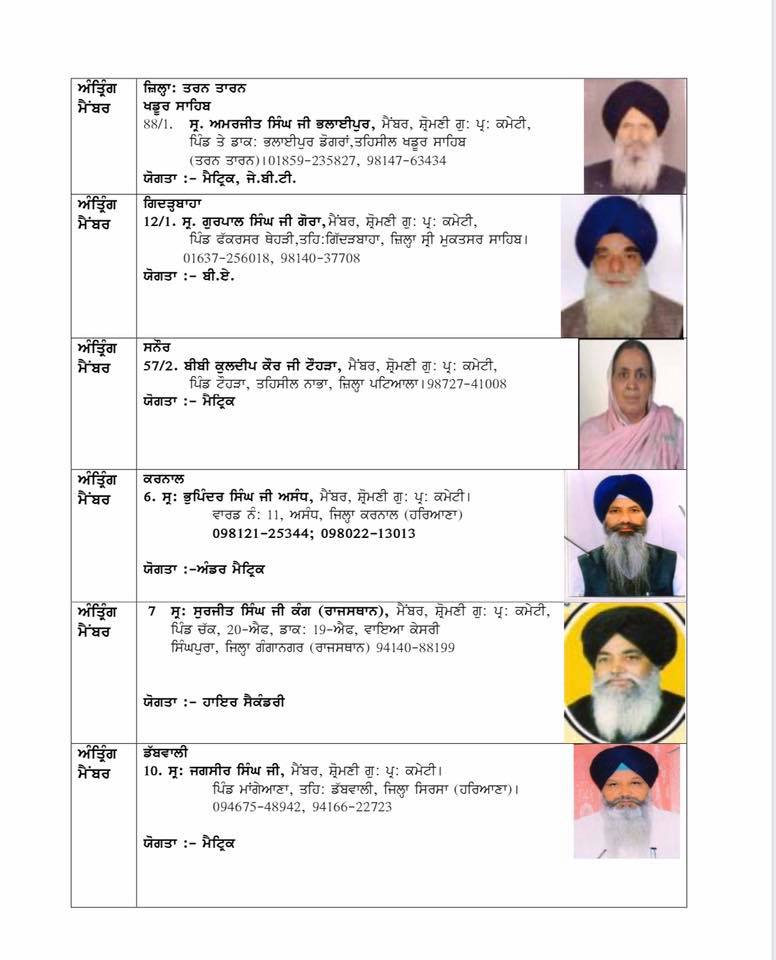 ਅੰਤ੍ਰਿੰਗ
ਮੈਂਬਰ
ਜ਼ਿਲ੍ਹਾ: ਤਰਨ ਤਾਰਨ
ਖਡੂਰ ਸਾਹਿਬ
88/1. ਸ੍ਰ. ਅਮਰਜੀਤ ਸਿੰਘ ਜੀ ਭਲਾਈਪੁਰ, ਮੈਂਬਰ, ਸ਼੍ਰੋਮਣੀ ਗੁ: ਪ੍ਰ: ਕਮੇਟੀ,
ਪਿੰਡ ਤੇ ਡਾਕ: ਭਲਾਈਪੁਰ ਡੋਗਰਾਂ,ਤਹਿਸੀਲ ਖਡੂਰ ਸਾਹਿਬ
(ਤਰਨ ਤਾਰਨ)।01859-235827, 98147-63434
ਯੋਗਤਾ :- ਮੈਟ੍ਰਿਕ, ਜੇ.ਬੀ.ਟੀ.
ਅੰਤ੍ਰਿੰਗ
ਮੈਂਬਰ
ਗਿਦੜ੍ਹਬਾਹਾ
12/1. ਸ੍ਰ. ਗੁਰਪਾਲ ਸਿੰਘ ਜੀ ਗੋਰਾ,ਮੈਂਬਰ, ਸ਼੍ਰੋਮਣੀ ਗੁ: ਪ੍ਰ: ਕਮੇਟੀ,
ਪਿੰਡ ਫੱਕਰਸਰ ਥੇਹੜੀ,ਤਹਿ:ਗਿੱਦੜਬਾਹਾ, ਜ਼ਿਲ੍ਹਾ ਸ੍ਰੀ ਮੁਕਤਸਰ ਸਾਹਿਬ।
01637-256018, 98140-37708
ਯੋਗਤਾ :- ਬੀ.ਏ.
ਅੰਤ੍ਰਿੰਗ
ਮੈਂਬਰ
ਸਨੌਰ
57/2. ਬੀਬੀ ਕੁਲਦੀਪ ਕੌਰ ਜੀ ਟੌਹੜਾ, ਮੈਂਬਰ, ਸ਼੍ਰੋਮਣੀ ਗੁ: ਪ੍ਰ: ਕਮੇਟੀ,
ਪਿੰਡ ਟੌਹੜਾ, ਤਹਿਸੀਲ ਨਾਭਾ, ਜ਼ਿਲ੍ਹਾ ਪਟਿਆਲਾ।98727-41008
ਯੋਗਤਾ :- ਮੈਟ੍ਰਿਕ
ਅੰਤ੍ਰਿੰਗ
ਮੈਂਬਰ
ਕਰਨਾਲ
6. ਸ੍ਰ: ਭੁਪਿੰਦਰ ਸਿੰਘ ਜੀ ਅਸੰਧ, ਮੈਂਬਰ, ਸ਼੍ਰੋਮਣੀ ਗੁ: ਪ੍ਰ: ਕਮੇਟੀ।
ਵਾਰਡ ਨੰ: 11, ਅਸੰਧ, ਜਿਲ੍ਹਾ ਕਰਨਾਲ (ਹਰਿਆਣਾ)
098121-25344; 098022-13013
ਯੋਗਤਾ :-ਅੰਡਰ ਮੈਟ੍ਰਿਕ
ਅੰਤ੍ਰਿੰਗ
ਮੈਂਬਰ
7 ਸ੍ਰ: ਸੁਰਜੀਤ ਸਿੰਘ ਜੀ ਕੰਗ (ਰਾਜਸਥਾਨ), ਮੈਂਬਰ, ਸ਼੍ਰੋਮਣੀ ਗੁ: ਪ੍ਰ: ਕਮੇਟੀ,
ਪਿੰਡ ਚੱਕ, 20-ਐਫ, ਡਾਕ: 19-ਐਫ, ਵਾਇਆ ਕੇਸਰੀ
ਸਿੰਘਪੁਰਾ, ਜਿਲ੍ਹਾ ਗੰਗਾਨਗਰ (ਰਾਜਸਥਾਨ) 94140-88199
ਯੋਗਤਾ :- ਹਾਇਰ ਸੈਕੰਡਰੀ
ਅੰਤ੍ਰਿੰਗ
ਮੈਂਬਰ
ਡੱਬਵਾਲੀ
10. ਸ੍ਰ: ਜਗਸੀਰ ਸਿੰਘ ਜੀ, ਮੈਂਬਰ, ਸ਼੍ਰੋਮਣੀ ਗੁ: ਪ੍ਰ: ਕਮੇਟੀ।
ਪਿੰਡ ਮਾਂਗੇਆਣਾ, ਤਹਿ: ਡੱਬਵਾਲੀ, ਜਿਲ੍ਹਾ ਸਿਰਸਾ (ਹਰਿਆਣਾ)।
094675-48942, 94166-22723
ਯੋਗਤਾ :- ਮੈਟ੍ਰਿਕ